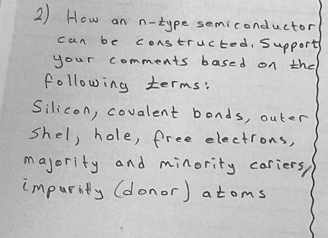 2) How an n-type semiconductor
can be constructed. Support
your comments based on the
following terms:
Silicon, covalent bonds, outer
shel, hole, free electrons,
majority and minority cariers,
impurity (donor) atoms